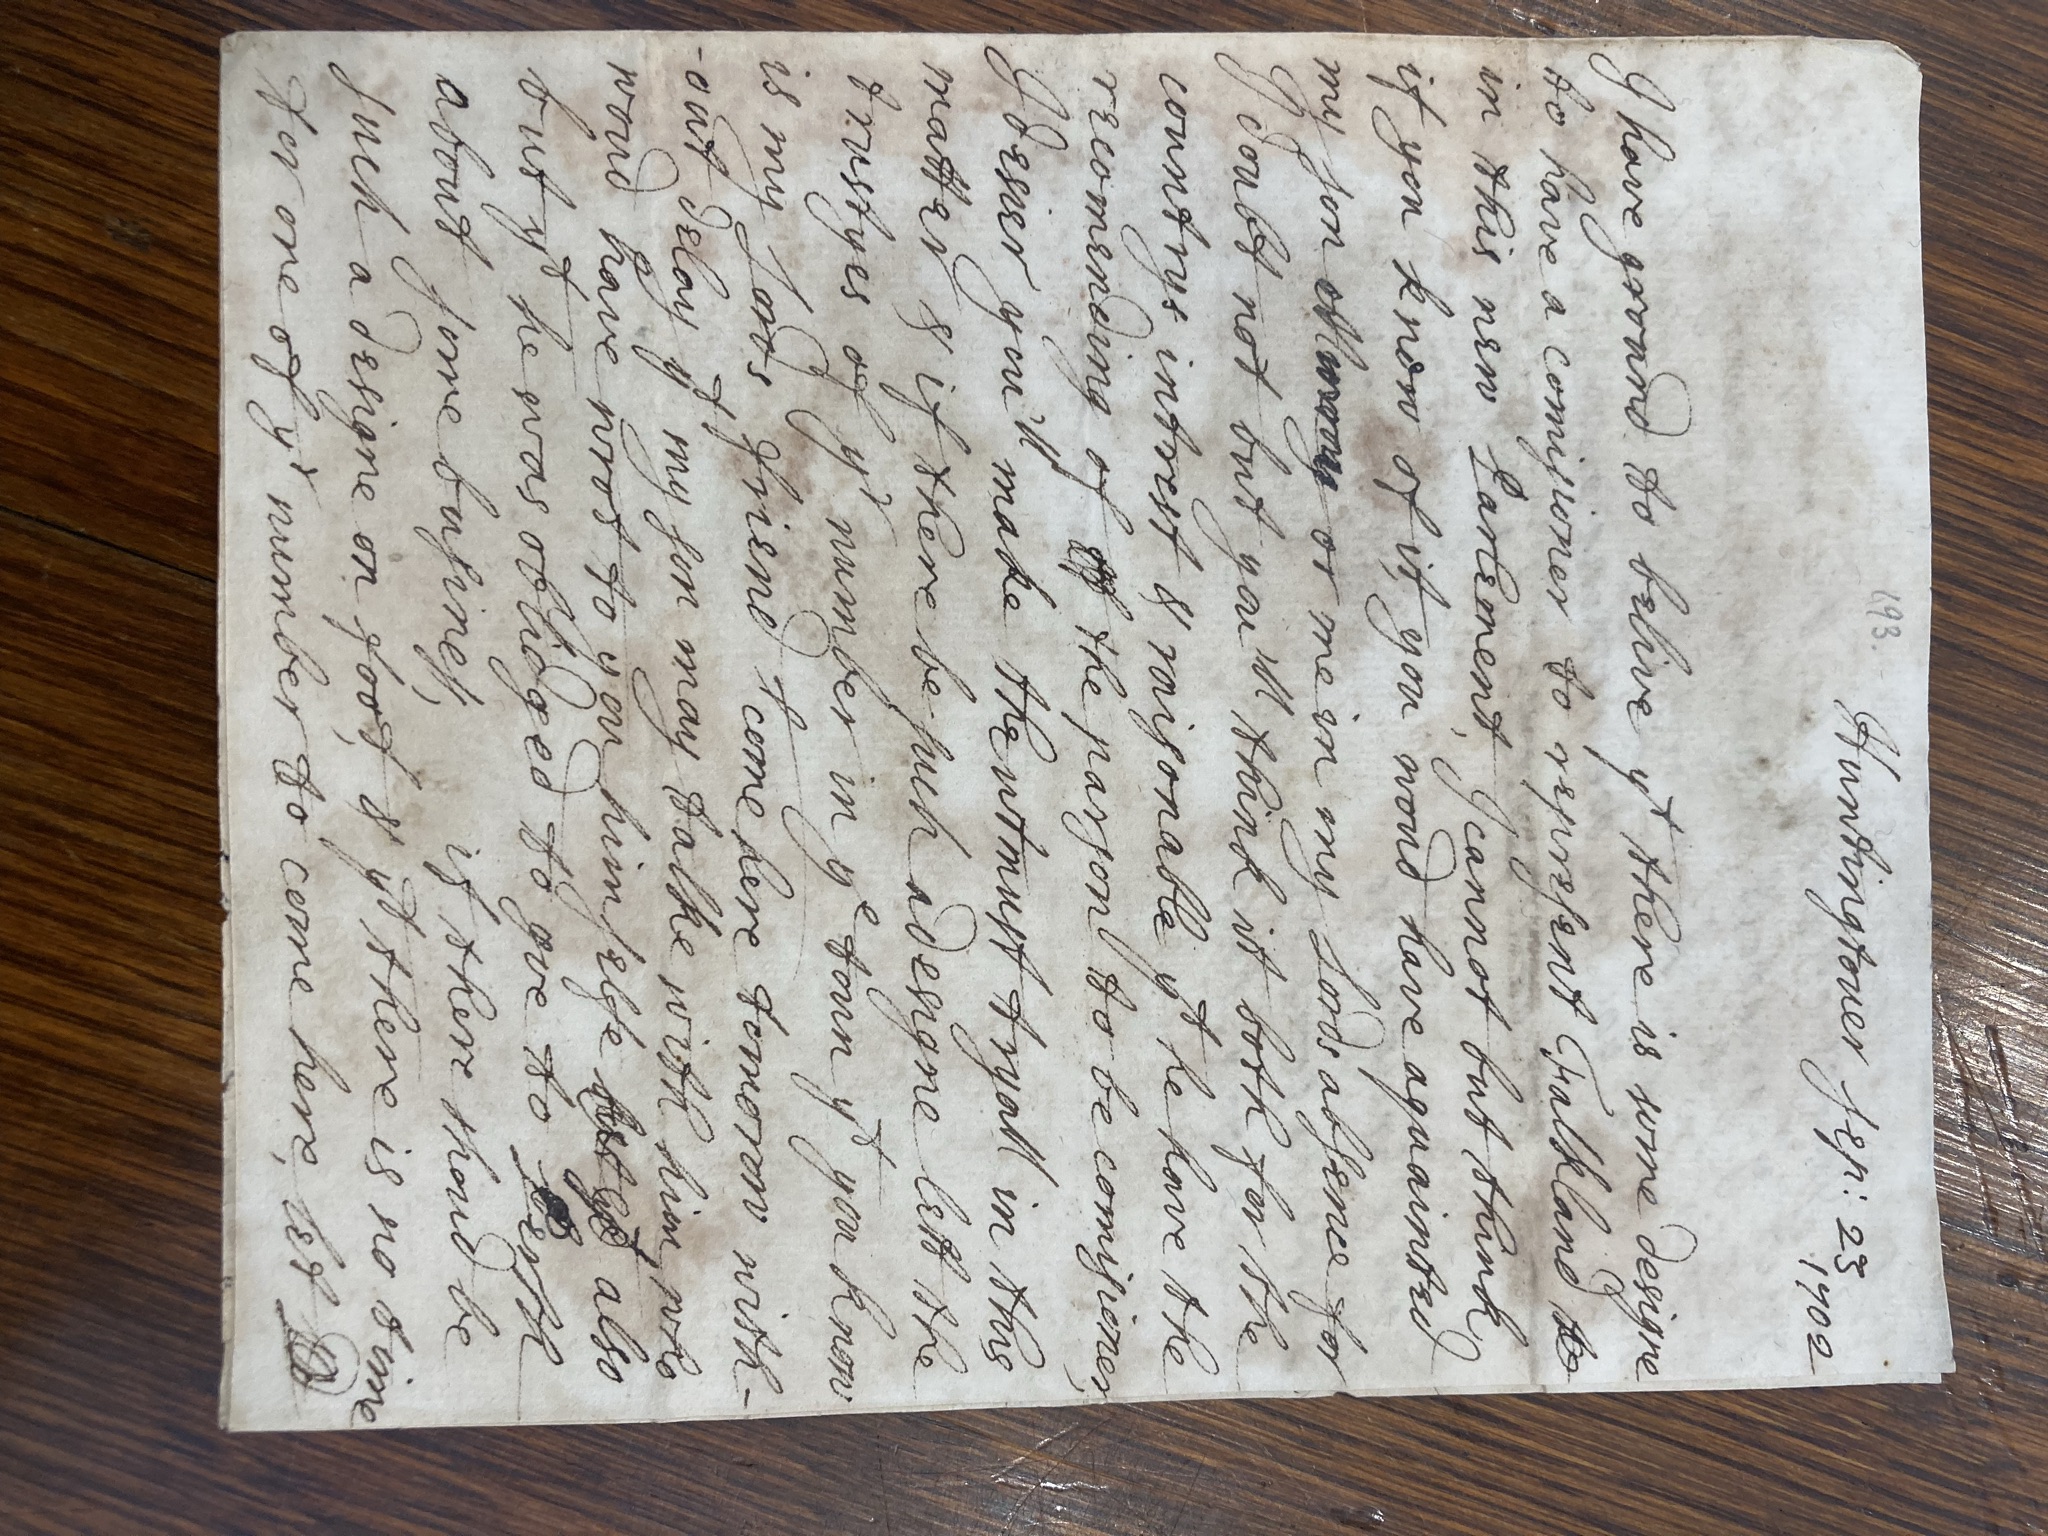 193.
Huntingtouer Sep: 23
1702
I have ground to belive yt there is some designe
to have a comisioner to represent Falkland to
in this new Parlement, I cannot but think
if you know of it, you woud have aquainted
my son Murray or me in my Lords absence for
I doubt not but you'll think it both for the
countrys intrest & raisonable yt he have the
recomending of of the parson to be comisioner,
I desier you'll make the utmust tryall in this
matter & if there be such a designe lett the
trustyes of yr number in ye toun yt you know
is my Lords friend come here tomorow with-
-out delay yt my son may talke with him, who
woud have wrot to you himselfe also
but yt he was oblidged to goe to Perth
about some business, if there shoud be
such a designe on foot, & yt there is no time
for one of yr number to come here, let